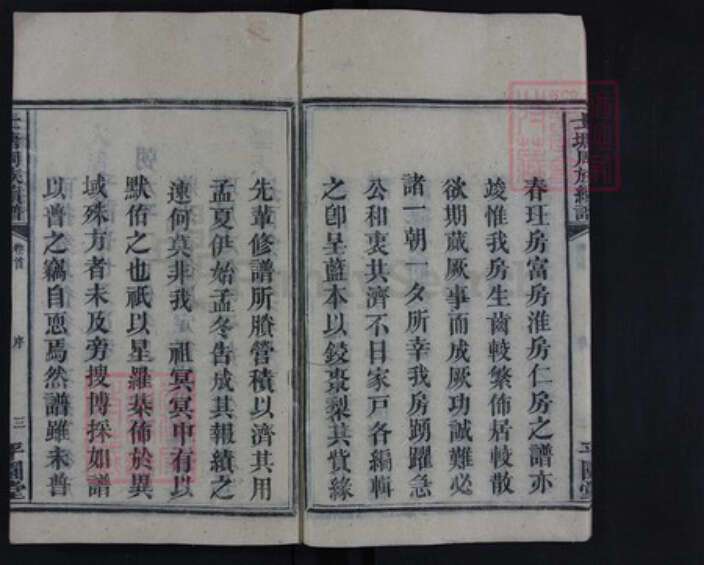 春玨房富房淮房仁房之譜亦
竣惟我房生齒較繁佈居較散
欲期蕆厥事而成厥功誠難必
諸一朝一夕所幸我房踴躍急
公和衷共濟不日家戸各編輯
之卽呈藍本以鋟棗梨其貲緣
先輩修譜所賸管積以濟其用
孟夏伊始孟冬告成其報績之
速何莫非我 祖冥冥中有以
默佑之也祇以星羅棊佈於異
域殊方者未及旁搜博採如譜
以普之竊自恧焉然譜雖未普
卷首 序 三